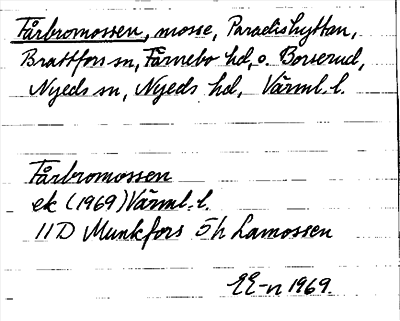 Fårbromossen, mosse, Paradishyttan,
Brattfors sn, Färnebo hd, o. Borserud,
Nyeds sn, Nyeds hd, Värml. l.
Fårbromossen
ek (1969) Värml. l.
11D Munkfors 5h Lamossen
EE-n 1969.